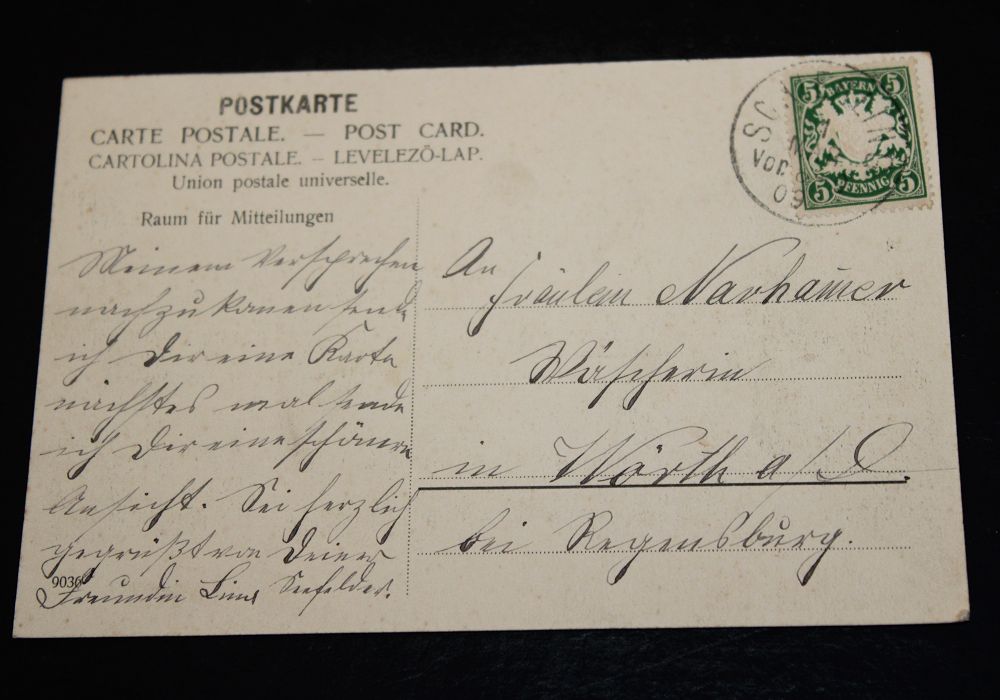 POSTKARTE
CARTE POSTALE. — POST CARD.
CARTOLINA POSTALE. – LEVELEZÖ-LAP.
Union postale universelle.
Raum für Mitteilungen
Meinem Versprechen
nachzukomen sende
ich Dir eine Karte
nächstes mal sende
ich Dir eine schönere
Ansicht. Sei herzlich
gegrüßt von Deiner
Freundin Lina Seefelder.
9036
An
Fräulein
Wäscherin
in Wörth a/D.
bei Regensburg.
BAYERN
5 5
5 5
PFENNIG
7
Vor.
09